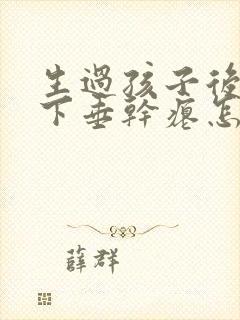 生過孩子後
下垂幹癟怎
薛群